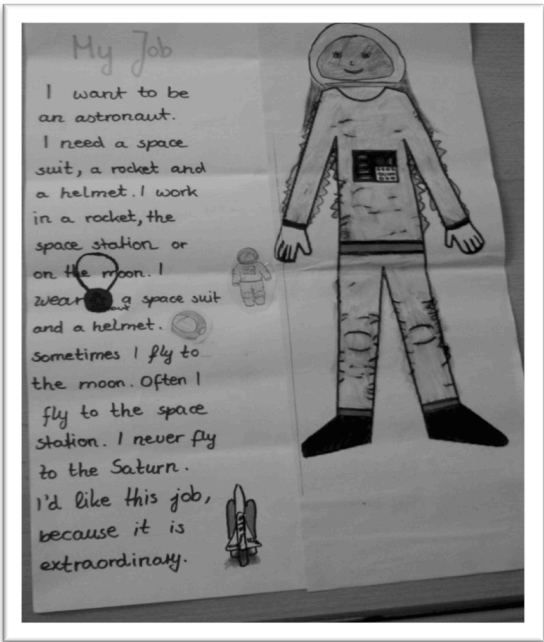 My Job
I want to be
an astronaut.
I need a space
suit, a rocket and
a helmet. I work
in a rocket, the
space station or
on the moon. I
wear a space suit
and a helmet.
Sometimes I fly to
the moon. Often I
fly to the space
station. I never fly
to the Saturn.
I'd like this job,
because it is
extraordinary.